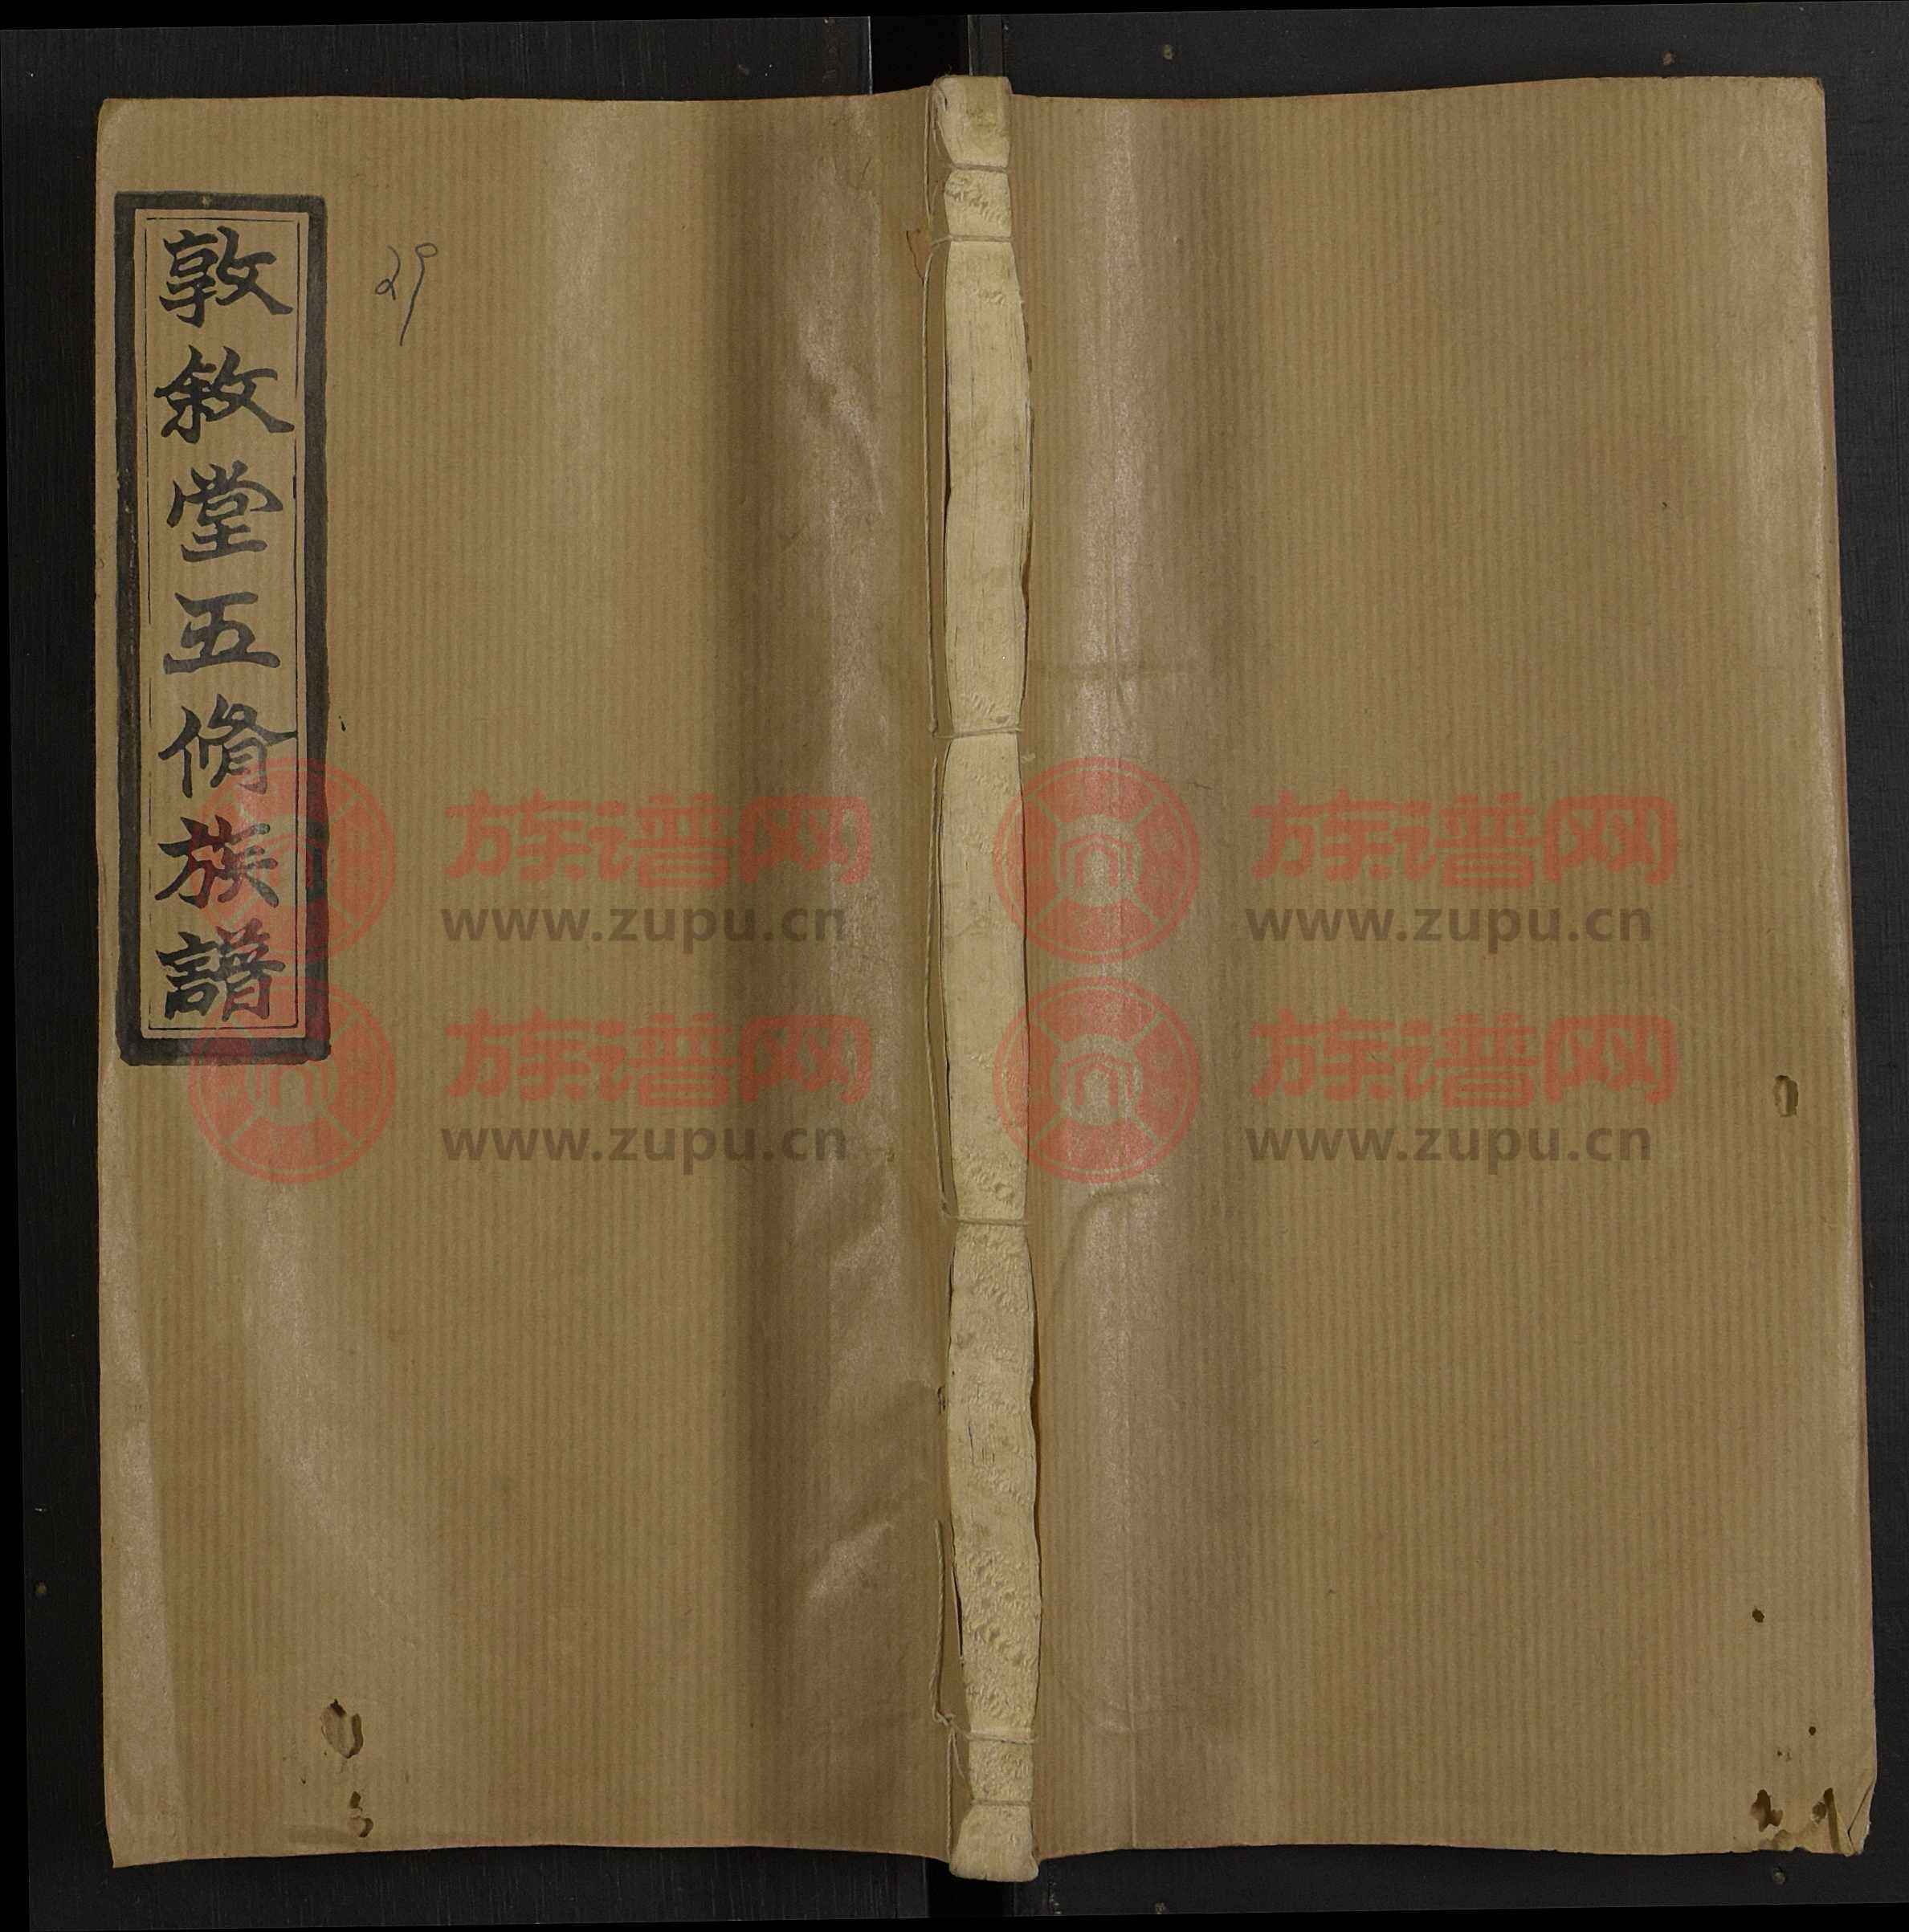 敦敘堂五脩族譜
29
族谱网
www.zupu.cn
族谱网
www.zupu.cn
族谱网
www.zupu.cn
族谱网
www.zupu.cn